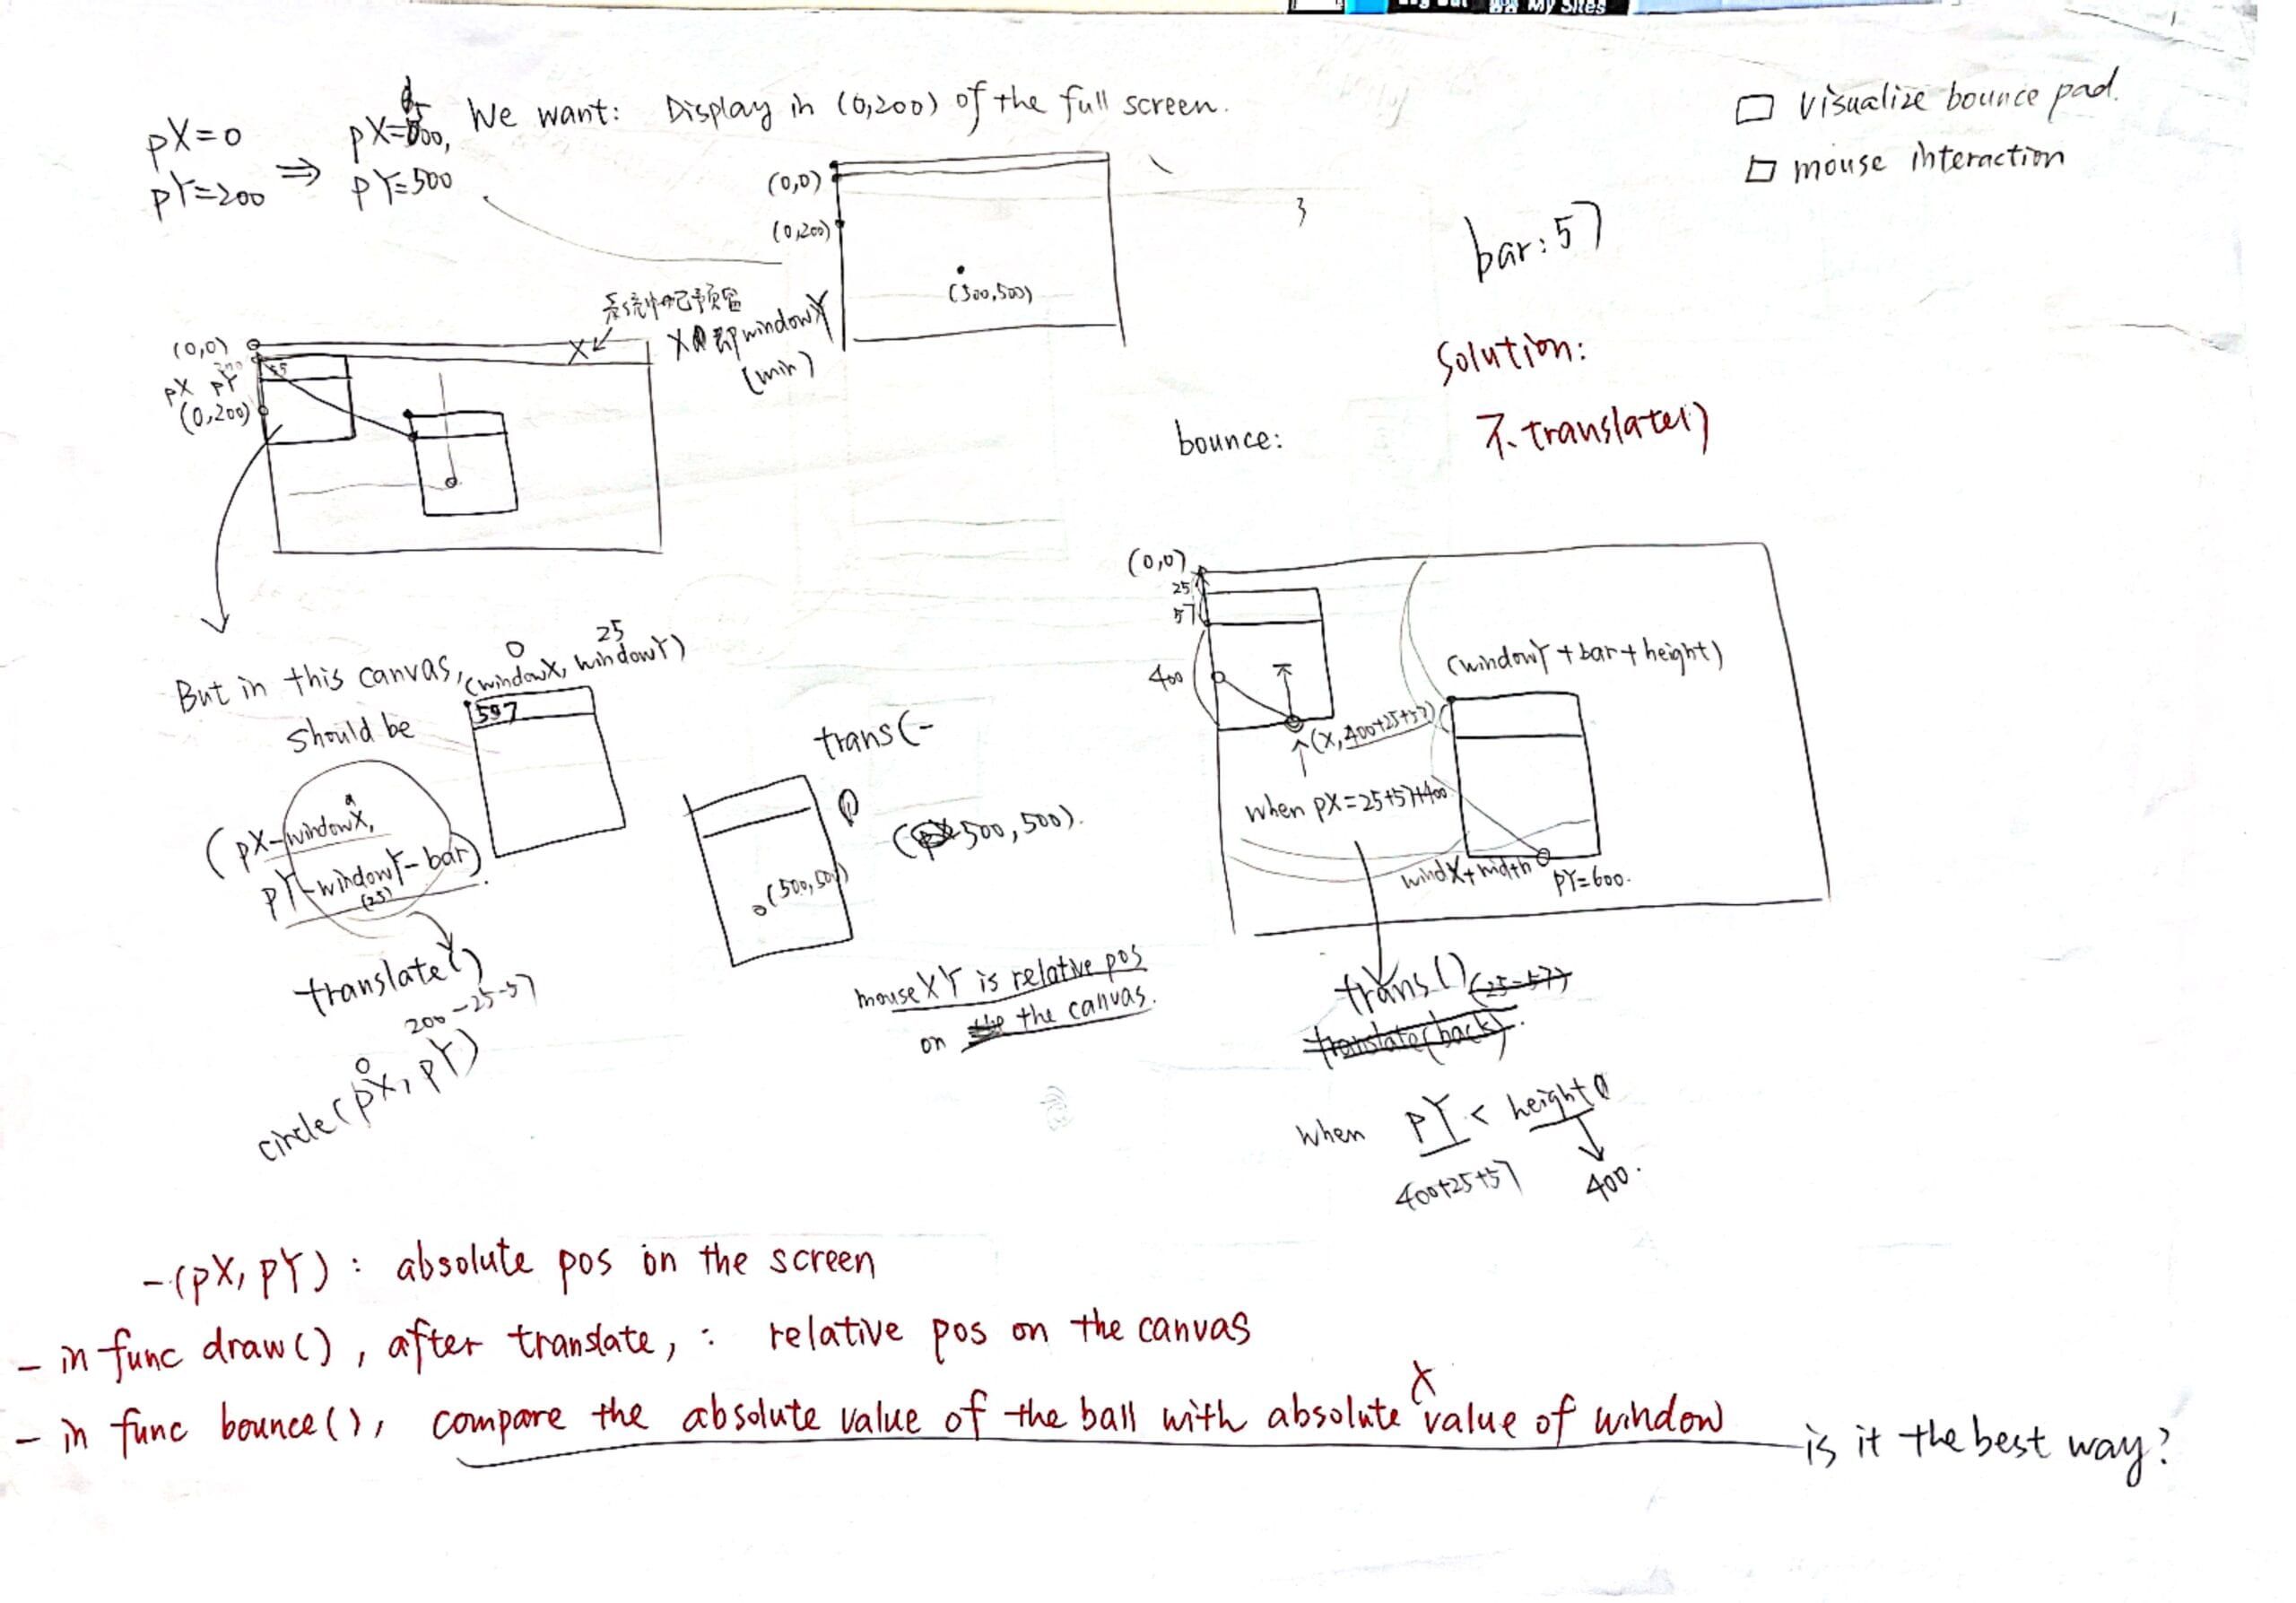 My Sites
pX=0
pY=200
⇒
pX=500,
pY=500
We want: Display in (0,200) of the full screen.
(0,0)
(0,200)
(500,500)
□ visualize bounce pad.
□ mouse interaction
bar: 57
Solution:
不 translate()
bounce:
windowY
(min)
(0,0)
pX pY
(0,200)
But in this canvas,
0 25
(windowX, windowY)
should be
(pX-windowX,
pY-windowY-bar).
(25)
translate()
200-25-57
0
circle(pX, pY)
trans(-
500, 500).
(500,500)
mouseXY is relative pos
on the canvas.
(0,0)
25
57
400
(X, 400+25+57)
when pX=25+57+400
(windowY+bar+height)
windX+width
pY=600.
trans() (25-57)
translate(back).
when pY < height
400+25+57
400.
-(pX, pY): absolute pos on the screen
- in func draw(), after translate,: relative pos on the canvas
- in func bounce(), compare the absolute value of the ball with absolute X value of window
is it the best way?